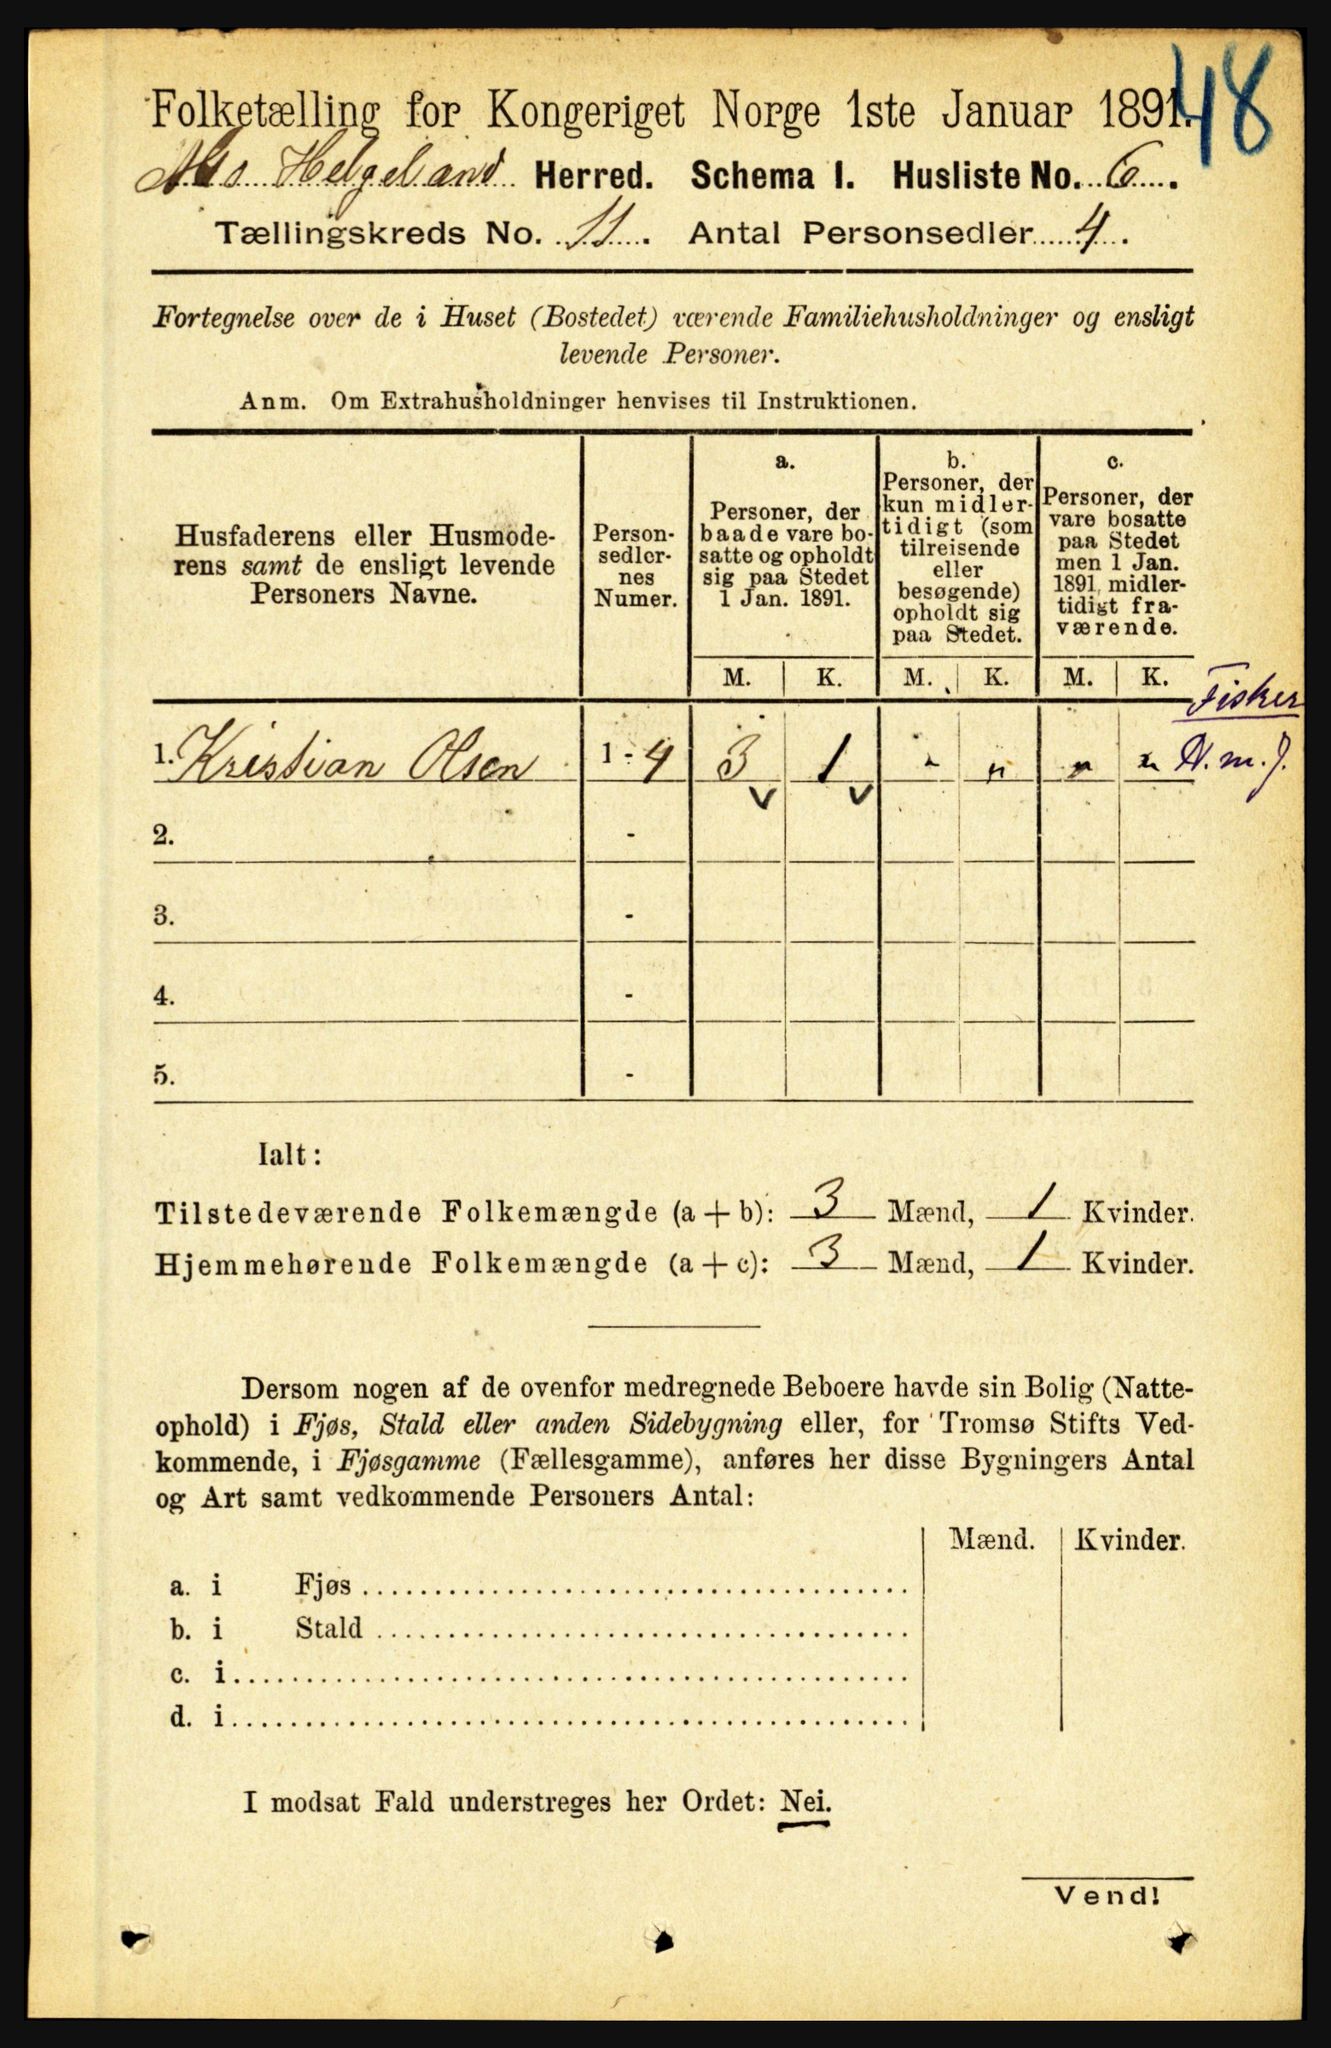 48
Folketælling for Kongeriget Norge 1ste Januar 1891.
Helgeland Herred. Schema I. Husliste No. 6.
Tællingskreds No. 11. Antal Personsedler 4.
Fortegnelse over de i Huset (Bostedet) værende Familiehusholdninger og ensligt
levende Personer.
Anm. Om Extrahusholdninger henvises til Instruktionen.
Husfaderens eller Husmode-
rens samt de ensligt levende
Personers Navne.
Person-
sedler-
nes
Numer.
a.
Personer, der
baade vare bo-
satte og opholdt
sig paa Stedet
1 Jan. 1891.
b.
Personer, der
kun midler-
tidigt (som
tilreisende
eller
besøgende)
opholdt sig
paa Stedet.
c.
Personer, der
vare bosatte
paa Stedet
men 1 Jan.
1891 midler-
tidigt fra-
værende.
M. K. M. K. M. K.
Fisker
1. Kristian Olsen 1 - 4 3 1 " " " " N. m. J.
2. -
3. -
4. -
5. -
Ialt:
Tilstedeværende Folkemængde (a + b): 3 Mænd, 1 Kvinder.
Hjemmehørende Folkemængde (a + c): 3 Mænd, 1 Kvinder.
Dersom nogen af de ovenfor medregnede Beboere havde sin Bolig (Natte-
ophold) i Fjøs, Stald eller anden Sidebygning eller, for Tromsø Stifts Ved-
kommende, i Fjøsgamme (Fællesgamme), anføres her disse Bygningers Antal
og Art samt vedkommende Personers Antal:
Mænd. Kvinder.
a. i Fjøs
b. i Stald
c. i
d. i
I modsat Fald understreges her Ordet: Nei.
Vend!